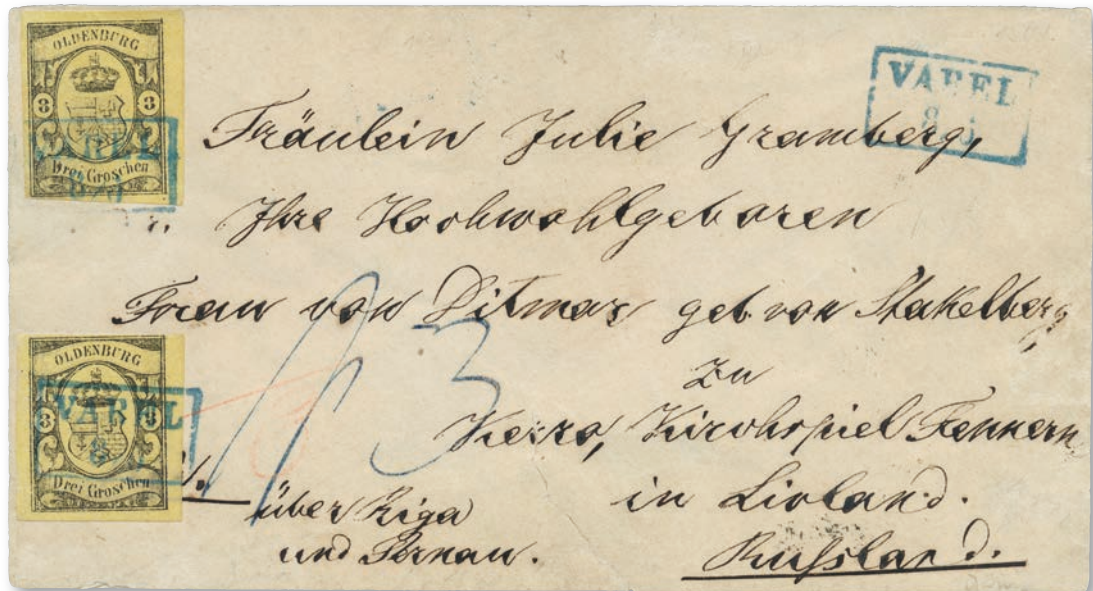 OLDENBURG
3 3
Drei Groschen
VAREL
VAREL
8
Fräulein Julie Gramberg,
Ihre Hochwohlgeboren
Frau von Ditmar geb. von Stakelberg,
zu
Kerro, Kirchspiel Fennern
in Livland.
Russland.
3
OLDENBURG
3 3
Drei Groschen
VAREL
8
über Riga
und Pernau.